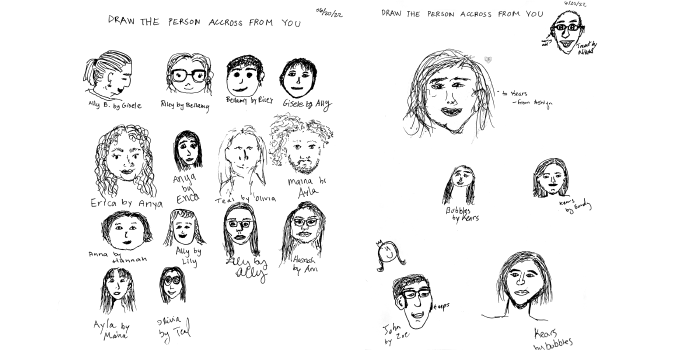 DRAW THE PERSON ACCROSS FROM YOU
Ally B. by Gisele
Riley by Bellamy
Bellamy by Riley
Gisele by Ally
Erica by Anya
Anya
by
Erica
Teal by Olivia
Maina by
Ayla
Anna by
Hannah
Ally by
Lily
Lily by
Ally
Hannah
by Ann
Ayla by
Maina
Olivia
by Teal
DRAW THE PERSON ACCROSS FROM YOU
to Kears
- from
Bubbles
by Kears
Kears
by
John
by Zoe
Kears
by bubbles